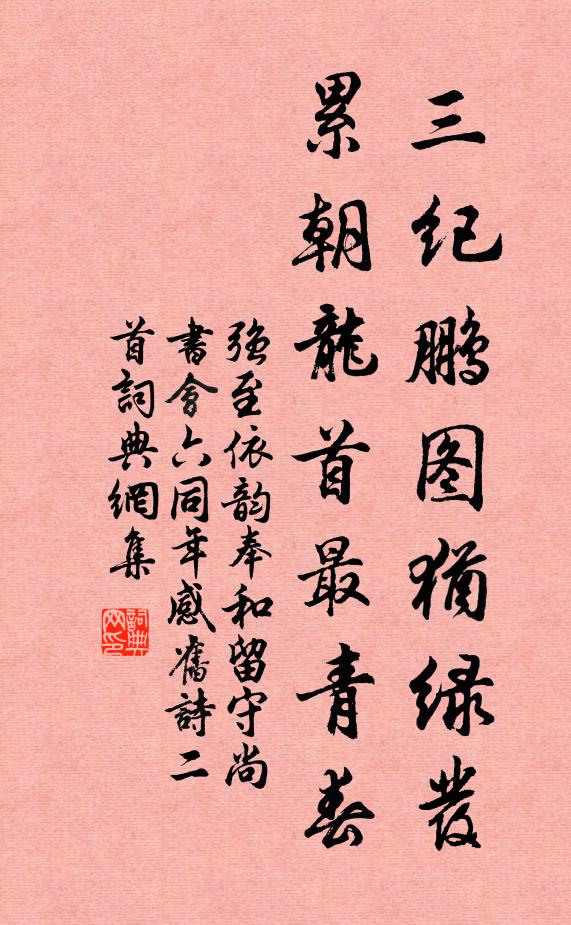 三纪鹏图犹绿发
累朝龍首最青春
强至依韵奉和留守尚
書會六同年感舊詩二
首詞典網集
詞典
网印